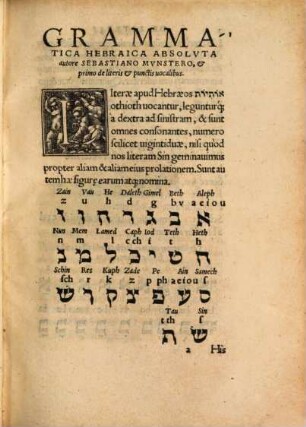 GRAMMA
TICA HEBRAICA ABSOLVTA
autore SEBASTIANO MVNSTERO, &
primo de literis & punctis uocalibus.
Literæ apud Hebræos אותיות
othioth uocantur, legunturq́;
a dextra ad sinistram, & sunt
omnes consonantes, numero
scilicet uigintiduæ, nisi quod
nos literam Sin geminauimus
propter aliam & aliam eius prolationem. Sunt au
tem hæ figuræ earum atq; nomina.
Zain Vau He Daleth Gimel Beth Aleph
z u h d g bv aeiou
א ב ג ד ה ו ז
Nun Mem Lamed Caph Iod Teth Heth
n m l ch i t h
ח ט י כ ל מ נ
Schin Res Kuph Zade Pe Ain Samech
sch r k z p ph aeiou s
ס ע פ צ ק ר ש
Tau Sin
t th s
ש ת
a Has